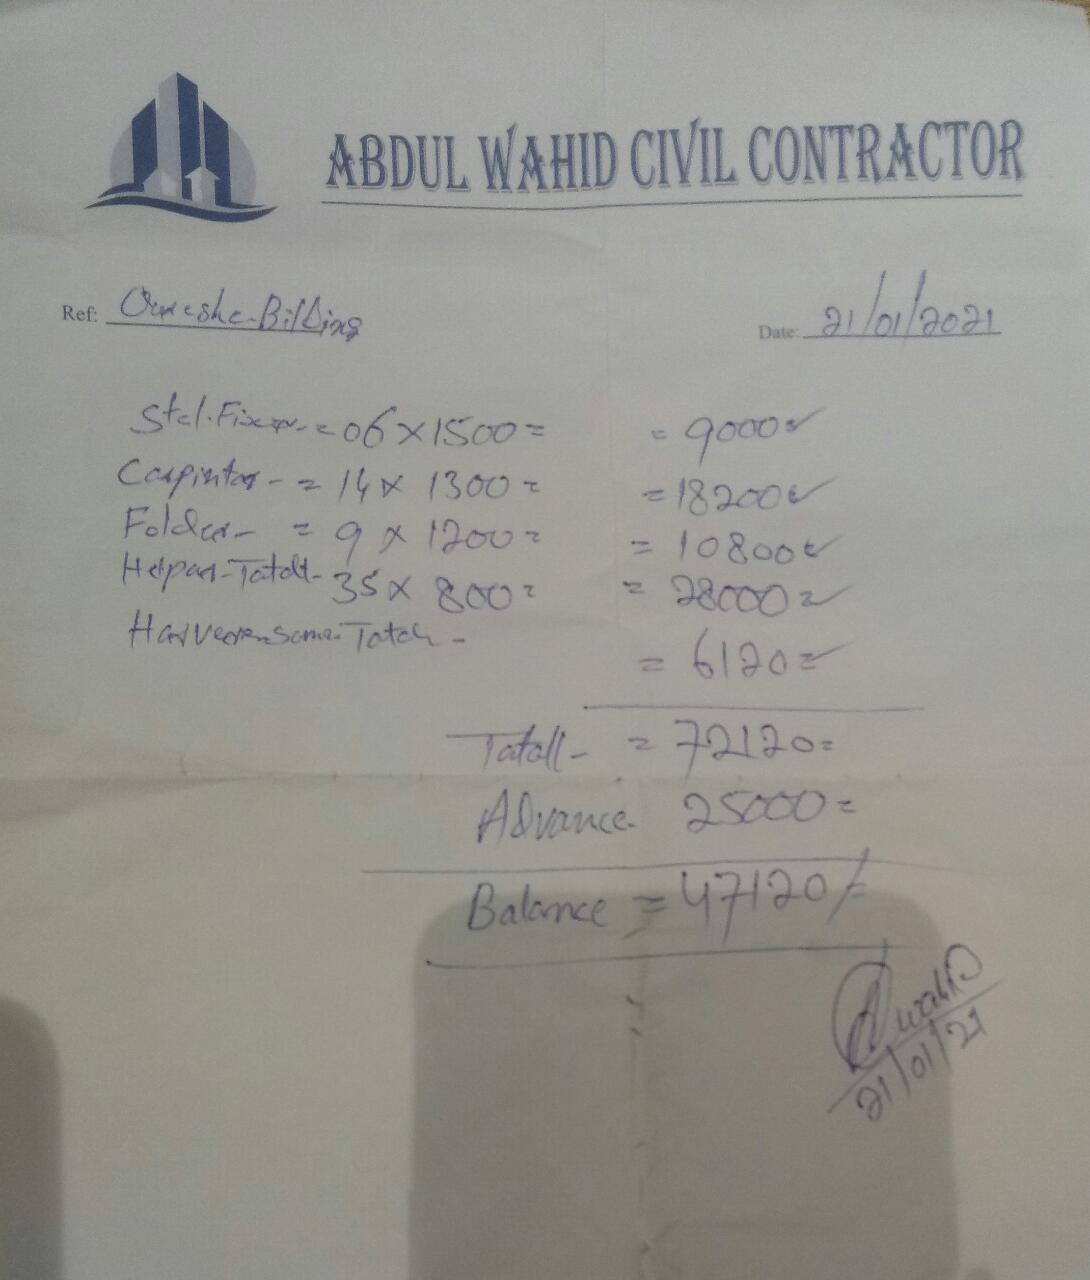 ABDUL WAHID CIVIL CONTRACTOR
Ref: Billding
Date: 21/01/2021
Stel.Fixer = 06 x 1500 = = 9000=
Carpintar - = 14 x 1300 = = 18200=
Folder - = 9 x 1200 = = 10800=
Helpar-Tatall - 35 x 800 = = 28000=
Tatall - = 6120=
Tatall - = 72120=
Advance 25000=
Balance = 47120/=
Awahid
21/01/21